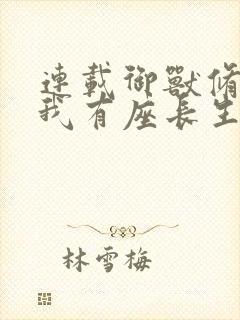 連載御獸脩
我有座長生
林雪梅